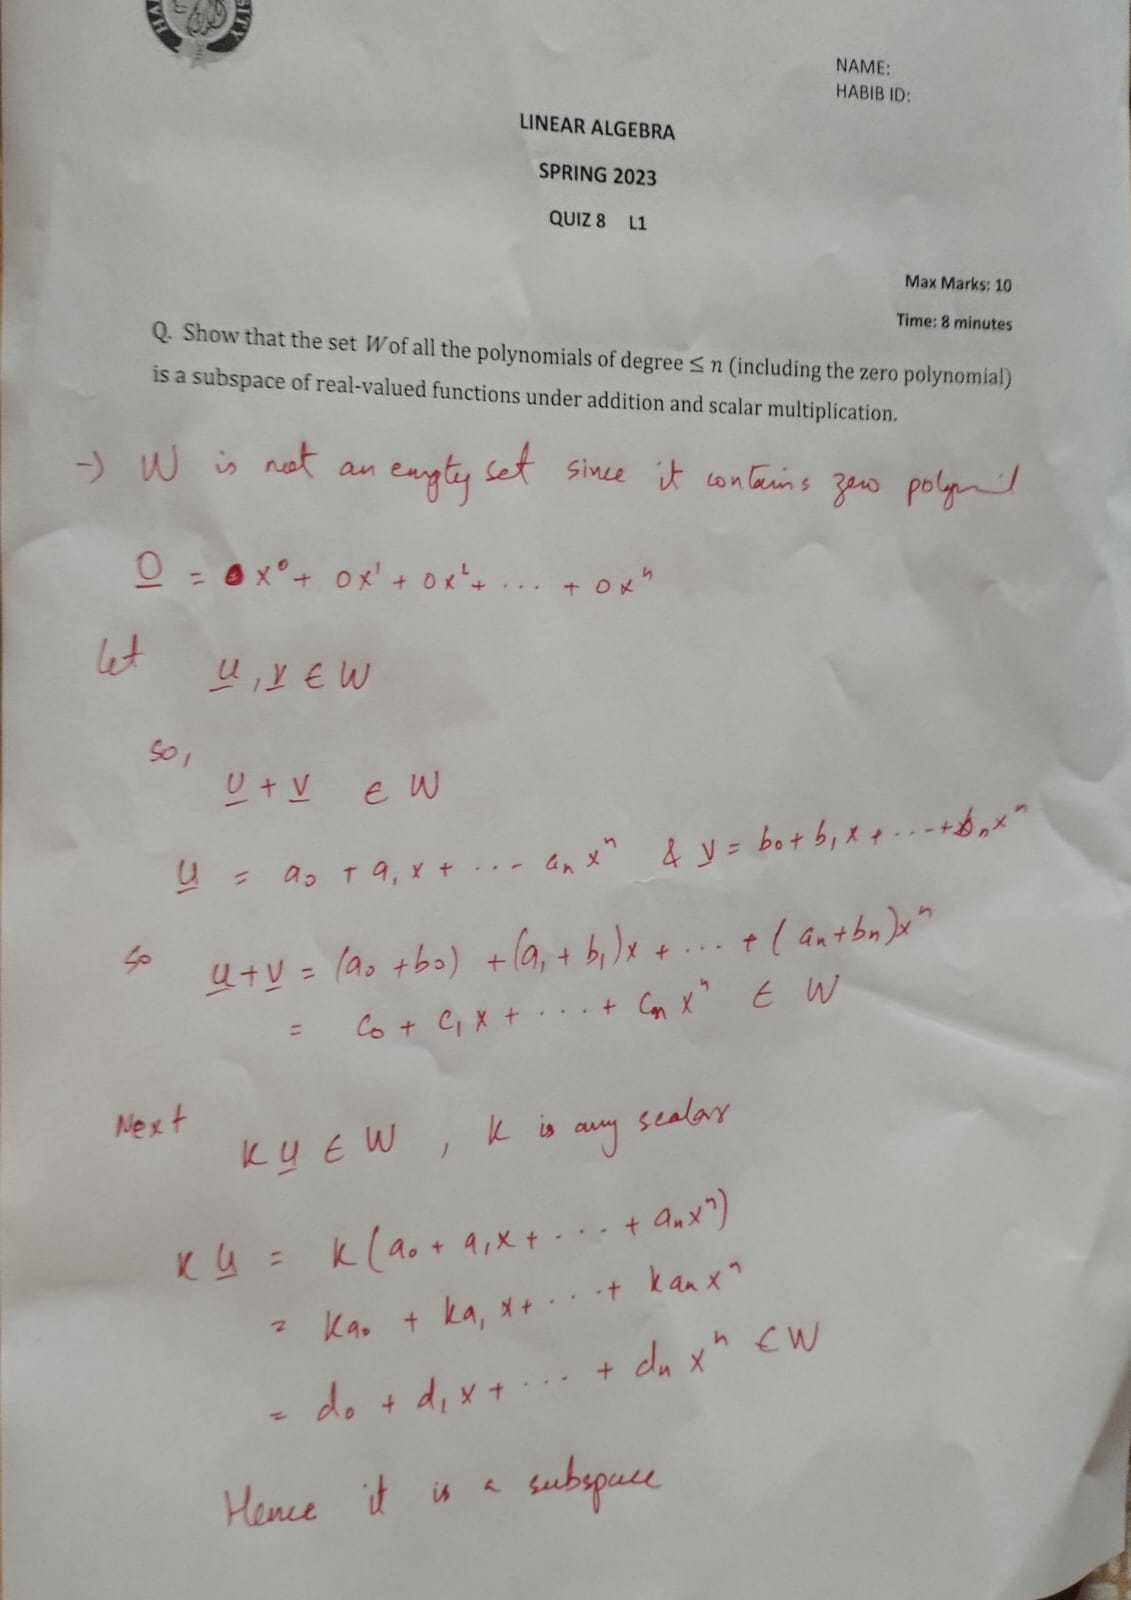 HA
SITY
NAME:
HABIB ID:
LINEAR ALGEBRA
SPRING 2023
QUIZ 8 L1
Max Marks: 10
Time: 8 minutes
Q. Show that the set W of all the polynomials of degree ≤ n (including the zero polynomial)
is a subspace of real-valued functions under addition and scalar multiplication.
→ W is not an empty set since it contains zero
0 = 0x⁰ + 0x¹ + 0x² + ... + 0xⁿ
Let u, v ∈ W
So,
u + v ∈ W
u = a₀ + a₁x + ... aₙxⁿ & v = b₀ + b₁x + ... + bₙxⁿ
So u+v = (a₀ + b₀) + (a₁ + b₁)x + ... + (aₙ + bₙ)xⁿ
= c₀ + c₁x + ... + cₙxⁿ ∈ W
Next
ku ∈ W , k is any scalar
ku = k(a₀ + a₁x + ... + aₙxⁿ)
= ka₀ + ka₁x + ... + kaₙxⁿ
= d₀ + d₁x + ... + dₙxⁿ ∈ W
Hence it is a subspace